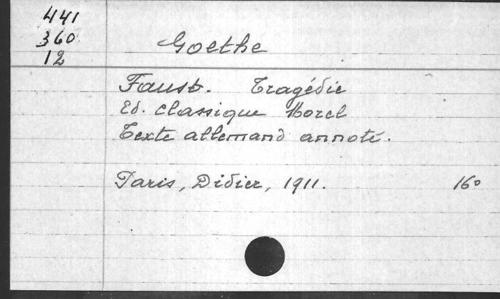 441
360
12
Goethe
Faust. Tragédie
Ed. classique Morel
Texte allemand annoté.
Paris, Didier, 1911. 16°